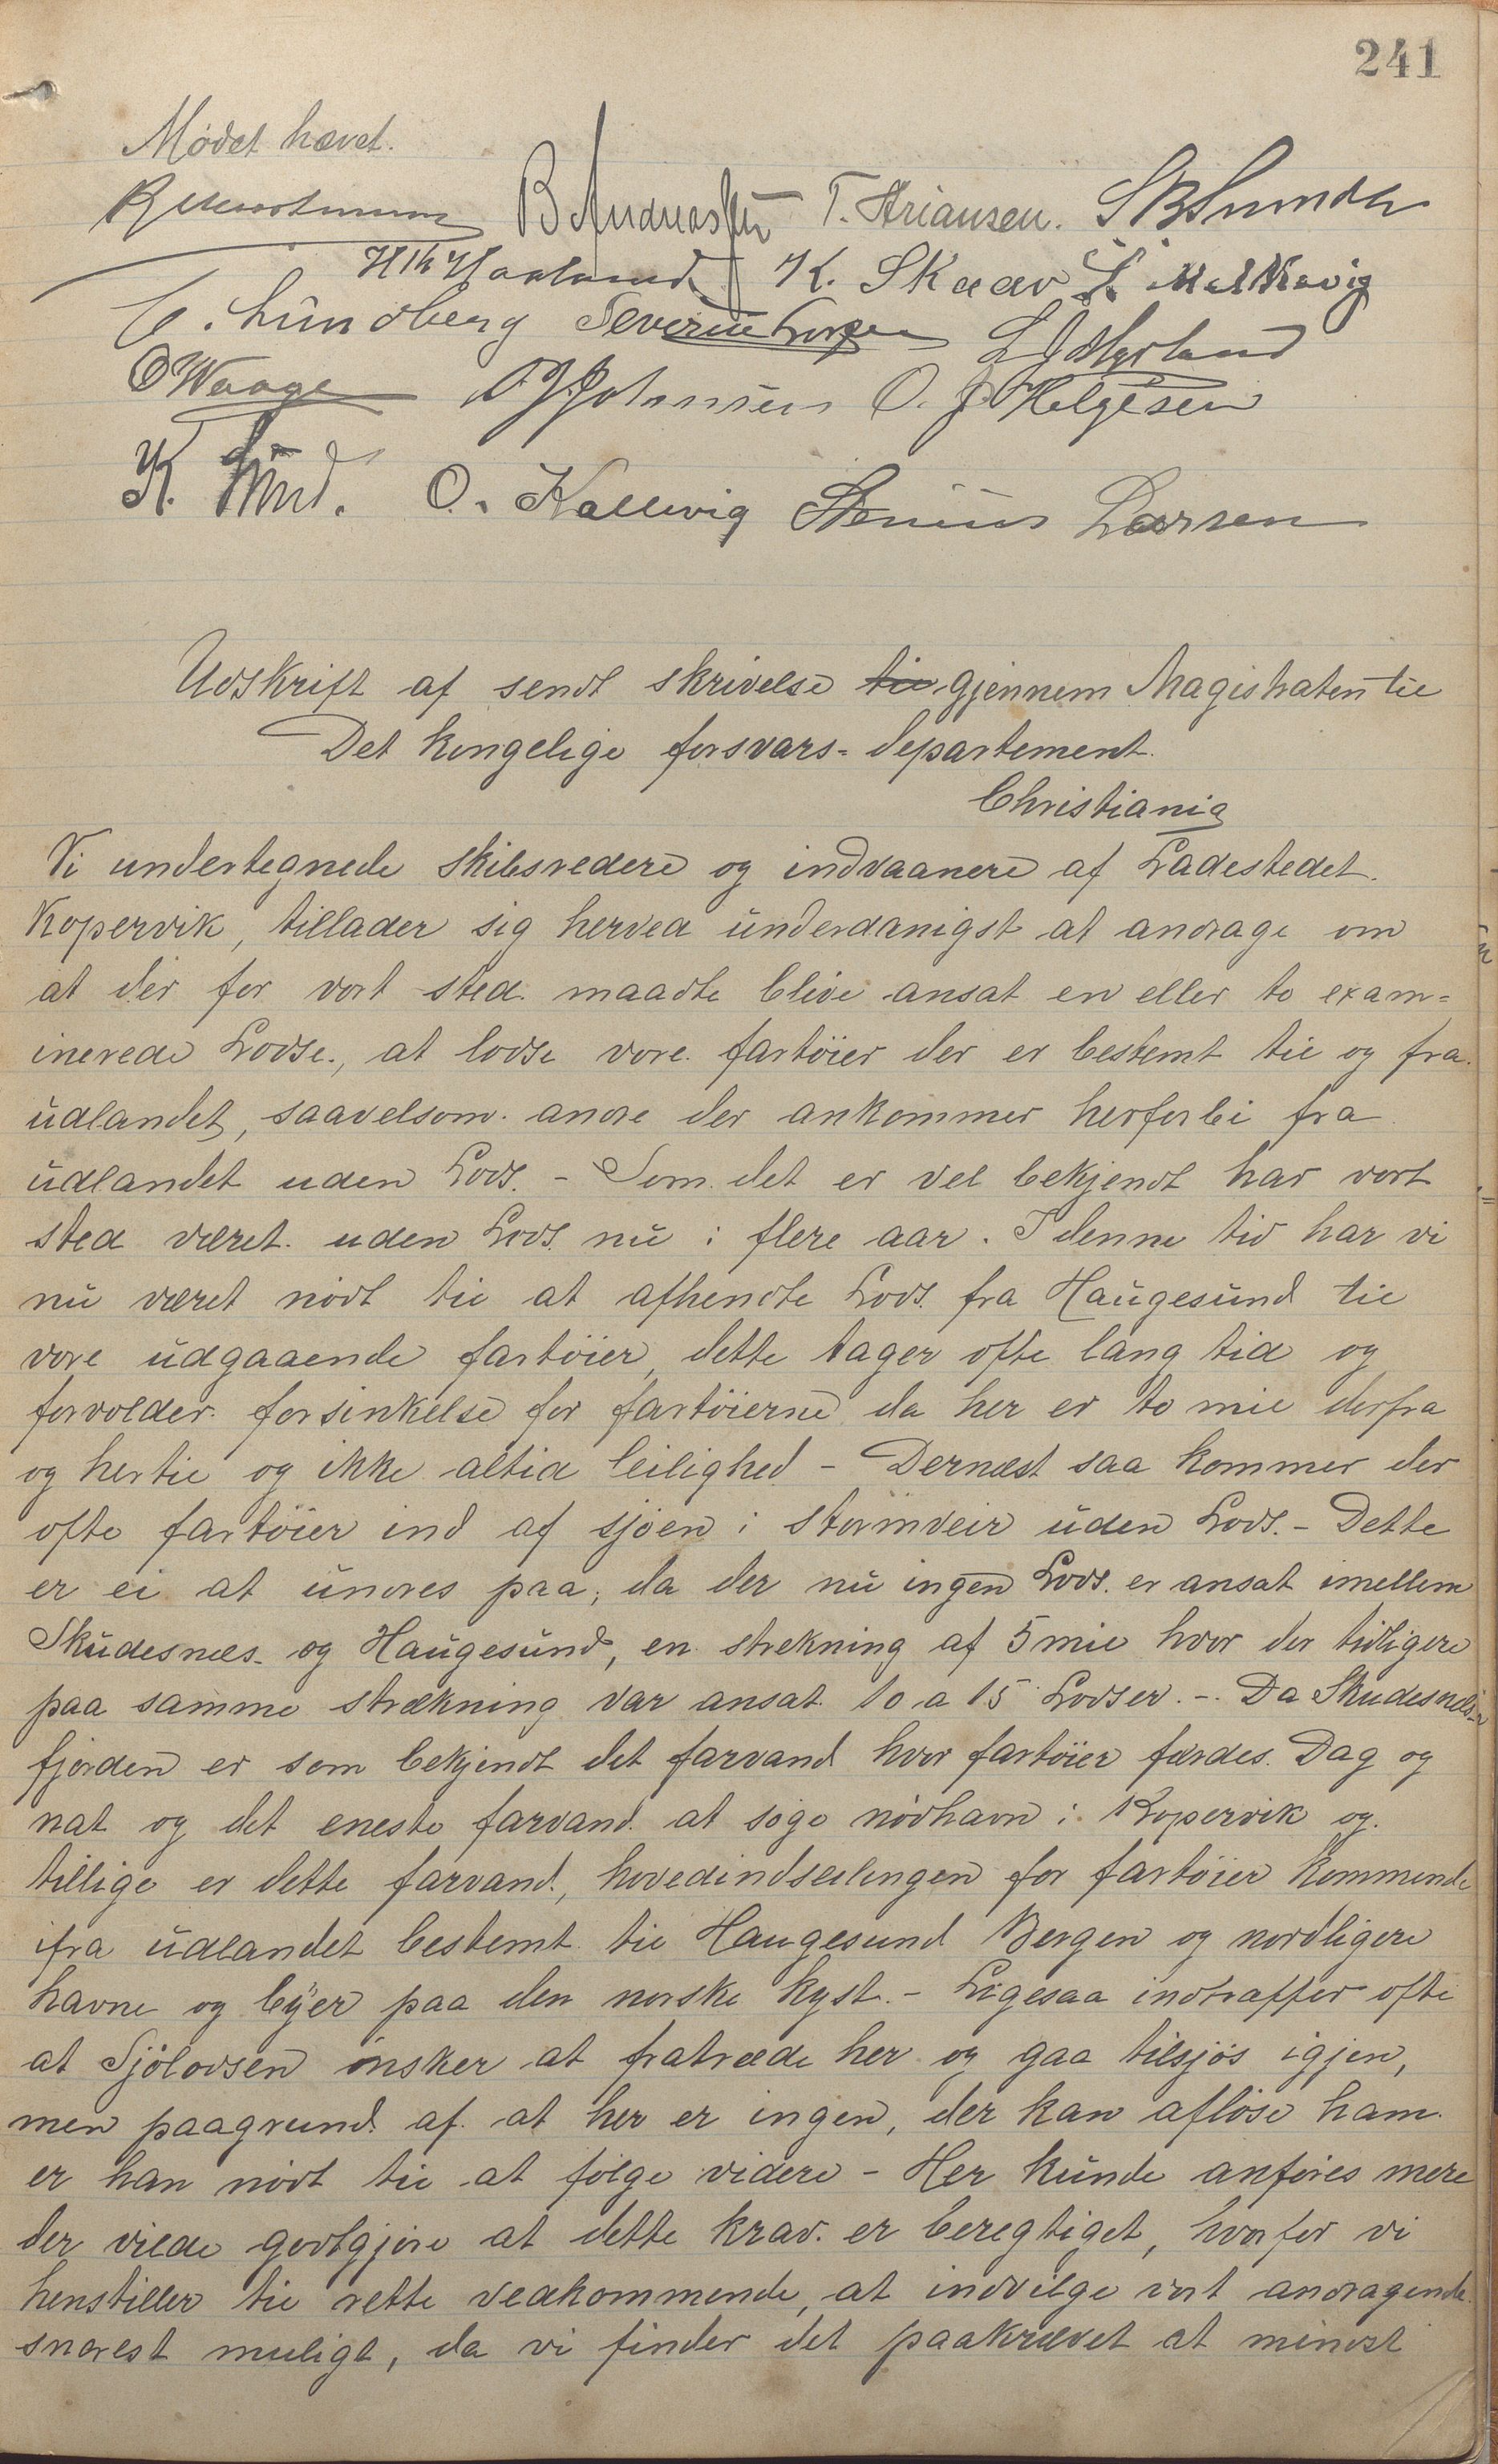 241
Mødet hævet.
T. Ariansen.
K. Skaar
C. Lundberg Severin Larsen
O Waage O. J. Helgesen
K. Lund. O. Kallevig Stenius Larsen
Udskrift af sendt skrivelse til gjennem Magistraten til
Det kongelige forsvars-departement.
Christiania
Vi undertegnede skibsredere og indvaanere af Ladestedet.
Kopervik, tillader sig herved underdanigst at andrage om
at der for vort sted maadte blive ansat en eller to exam=
inerede Lodse., at lodse vore fartöier der er bestemt til og fra
udlandet, saavelsom andre der ankommer herforbi fra
udlandet uden Lods. - Som det er vel bekjendt har vort
sted været uden Lods nu i flere aar. I denne tid har vi
nu været nödt til at afhendte Lods fra Haugesund til
vore udgaaende fartöier, dette tager ofte lang tid og
forvolder forsinkelse for fartöierne da her er to mil derfra
og hertil og ikke altid leilighed - Dernæst saa kommer der
ofte fartöier ind af sjöen i stormveir uden Lods. - Dette
er ei at undres paa, da der nu ingen Lods er ansat imellem
Skudesnæs og Haugesund, en strekning af 5 mil hvor der tidligere
paa samme strækning var ansat 10 a 15 Lodser. - Da Skudesnæs-
fjorden er som bekjendt det farvand hvor fartöier færdes Dag og
nat og det eneste farvand at söge nödhavn i Kopervik og
tillige er dette farvand, hovedindseilingen for fartöier kommende
ifra udlandet bestemt til Haugesund Bergen og nordligere
havne og byer paa den norske kyst. - Ligesaa indtræffer ofte
at Sjölodsen önsker at fratræde her og gaa tilsjös igjen,
men paagrund af at her er ingen, der kan aflöse ham
er han nödt til at fölge videre - Her kunde anföres mere
der vilde godtgjöre at dette krav er beregtiget, hvorfor vi
henstiller til rette vedkommende, at indvilge vort andragende
snarest muligt, da vi finder det paakrævet at mindst